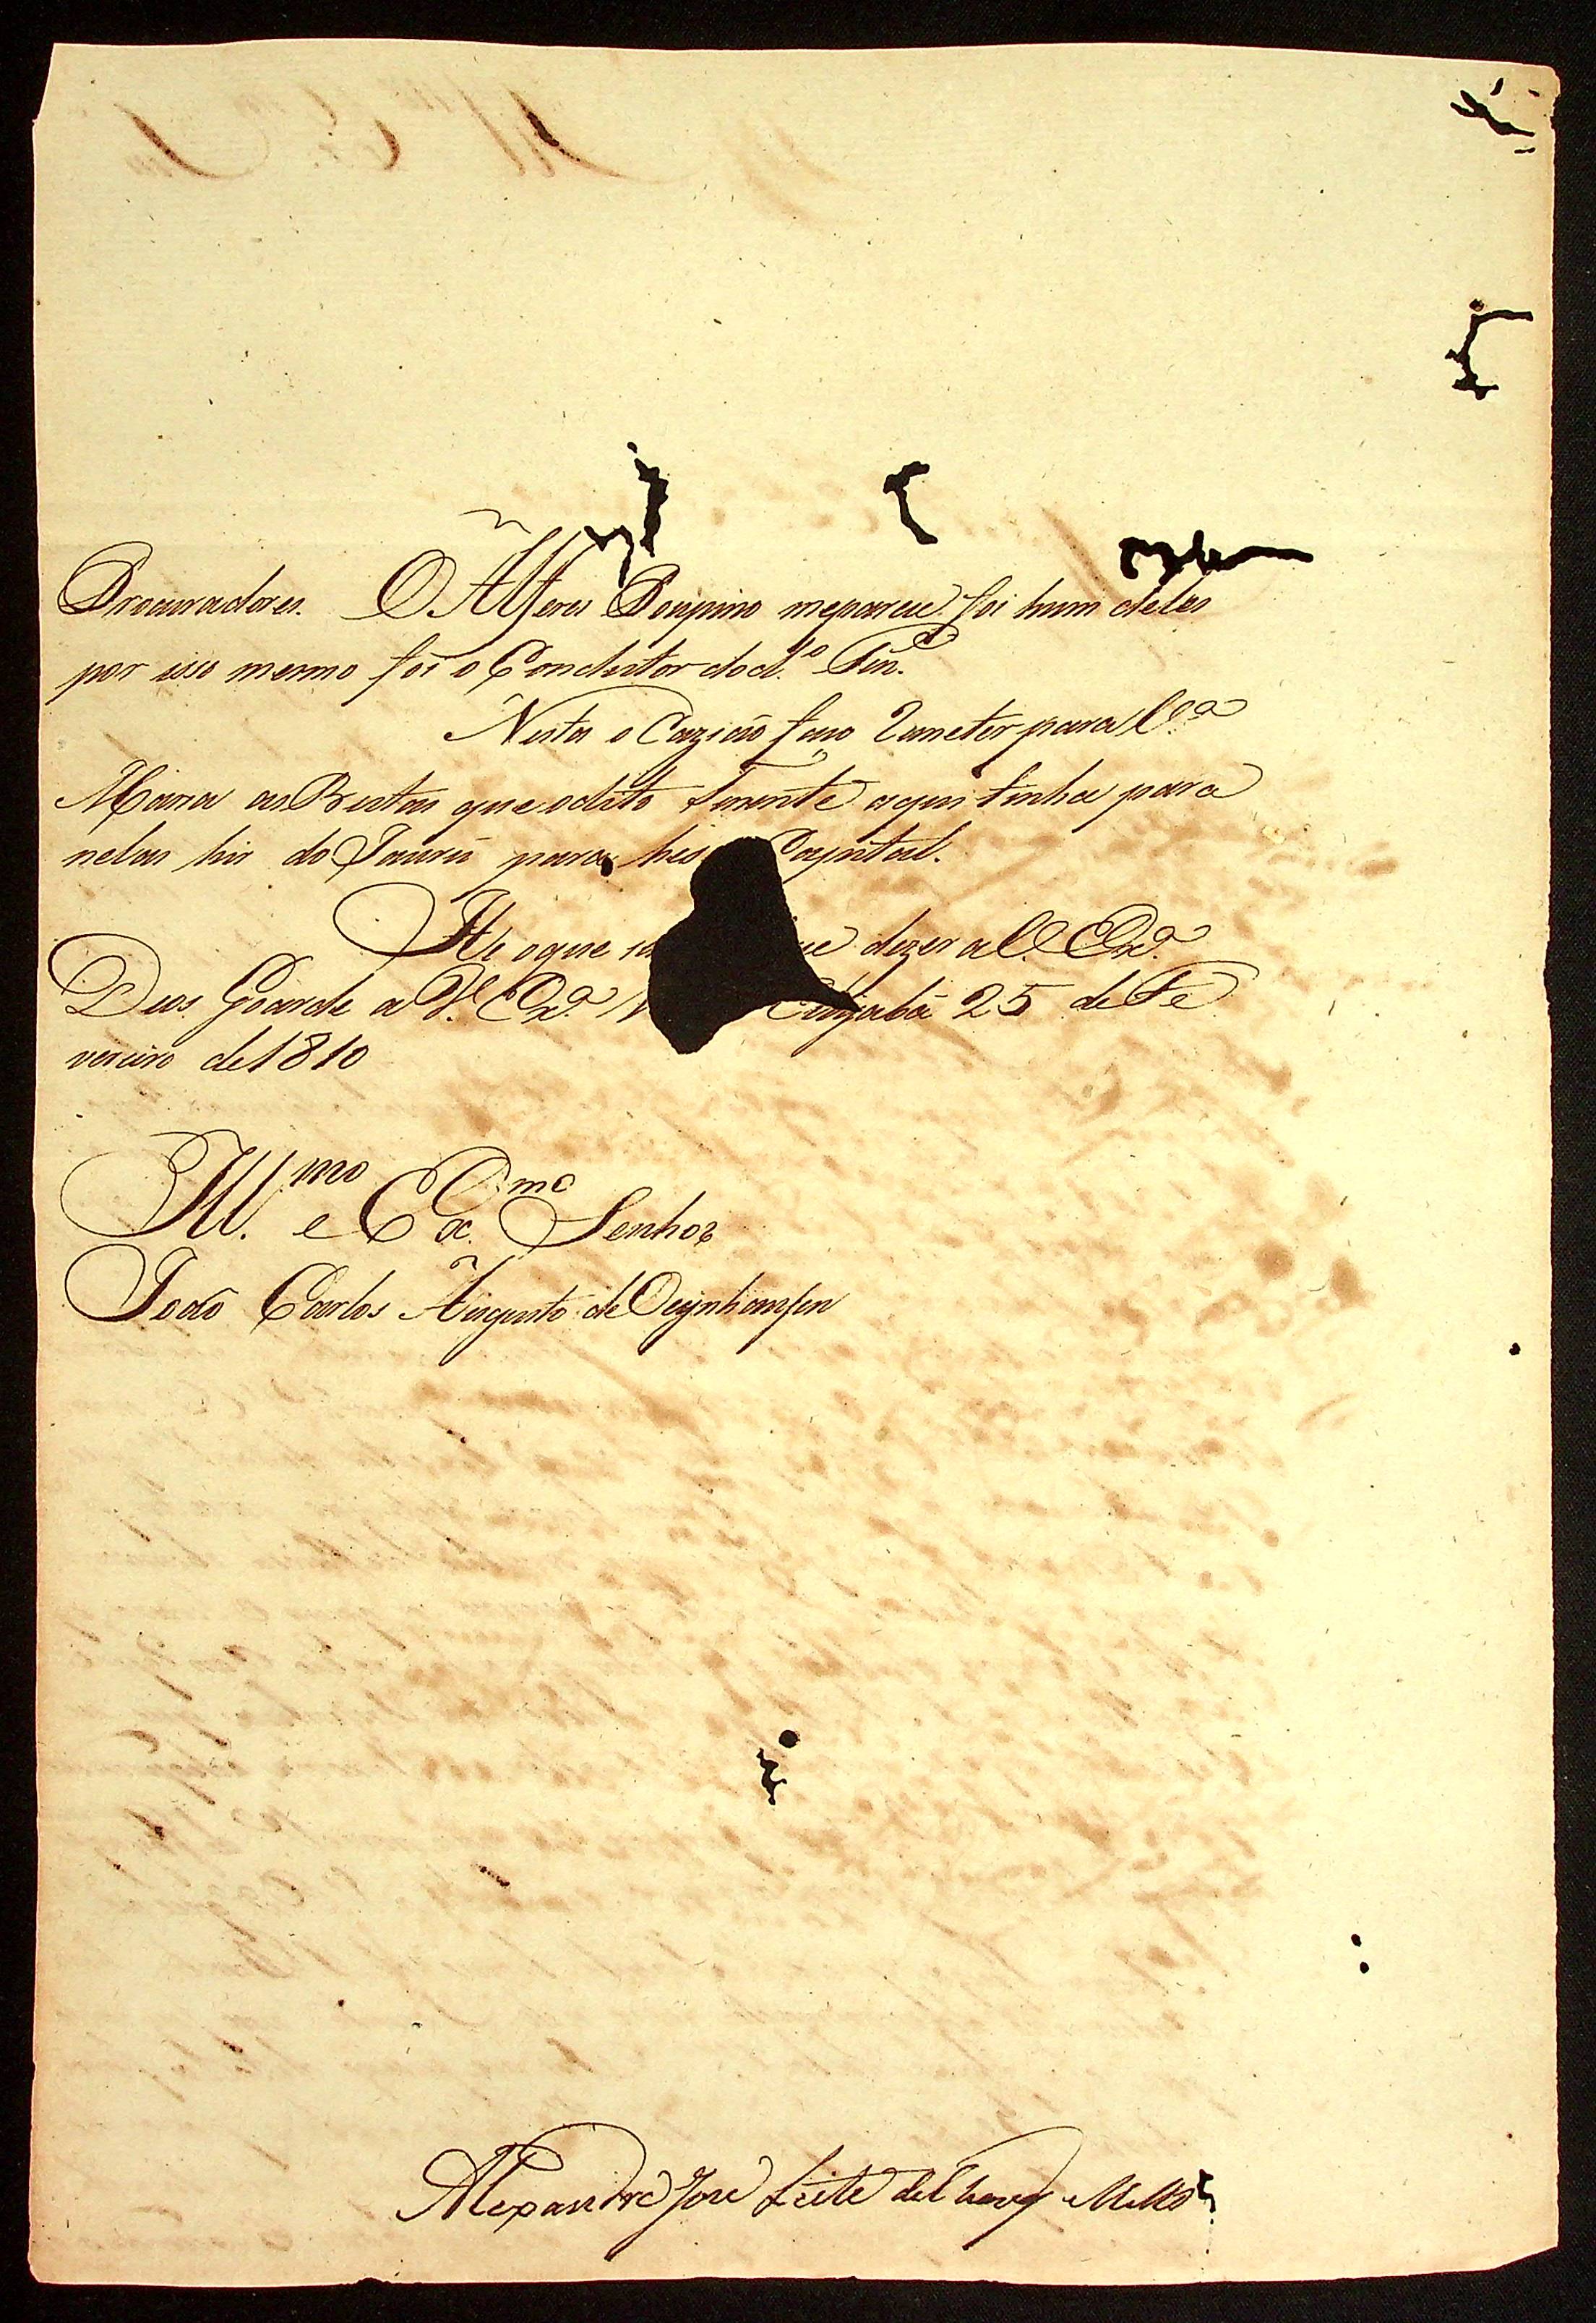 Procuradores. O Alferes Pompino meparece foi hum deles
por isso mesmo foi o Conductor dod.º Ten.e
Nesta o Cazião faso Remeter para V.ª
Maria as Bestas que odito Tenente aqui tinha para
nelas hir do Jaurú para hesa Capital.
He oque dezer a V. Ex.ª
Deos Goarde a V. Ex.ª Cuyabá 25 de Fe
vereiro de 1810
Ill.mo e Ex.mo Senhor
João Carlos Augusto de Oeynhausen
Alexandre Jose Leite de Chaves e Mello